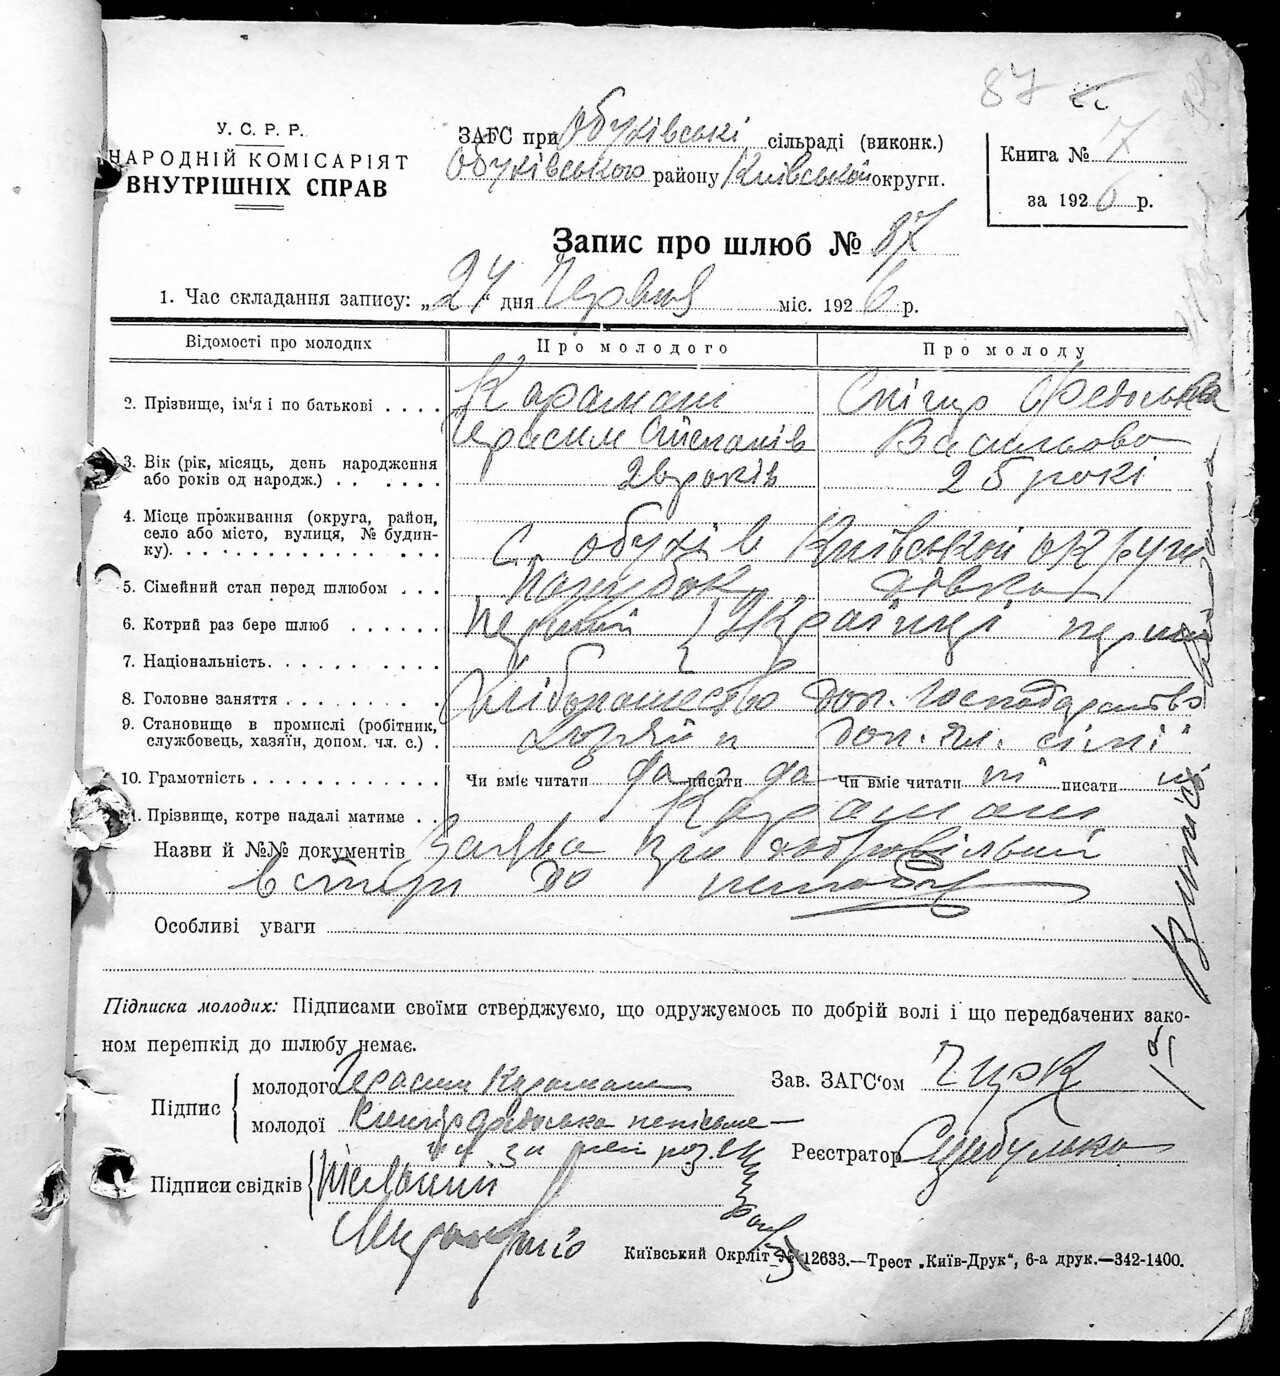 87
У. С. Р. Р.
НАРОДНІЙ КОМІСАРІЯТ
ВНУТРІШНІХ СПРАВ
ЗАГС при Обухівські сільраді (виконк.)
Обухівського району Київської округи.
Книга № 7
за 1926 р.
Запис про шлюб № 87
1. Час складання запису: „27" дня Червня міс. 1926 р.
Відомості про молодих
Про молодого
Про молоду
2. Прізвище, ім'я і по батькові . . . .
Караман
Герасим Степанів
Снігир Федоська
Васильова
3. Вік (рік, місяць, день народження
або років од народж.) . . . . . .
26 років
25 рокі
4. Місце проживання (округа, район,
село або місто, вулиця, № будин-
ку). . . . . . . . . . . . . . .
С. Обухів Київської округи
5. Сімейний стан перед шлюбом . . .
Парубок
дівка
6. Котрий раз бере шлюб . . . . . .
Первий
перший
7. Національність. . . . . . . . . .
Українці
8. Головне заняття . . . . . . . . .
Хліборошество
доп. господарство
9. Становище в промислі (робітник,
службовець, хазяїн, допом. чл. с.) .
доп. чл. сімї
10. Грамотність . . . . . . . . . . .
Чи вміє читати да писати да
Чи вміє читати ні писати ні
11. Прізвище, котре надалі матиме . .
Караман
Назви й №№ документів Заява про добровільний
вступ до шлюбу
Особливі уваги
Підписка молодих: Підписами своїми стверджуємо, що одружуємось по добрій волі і що передбачених зако-
ном перешкід до шлюбу немає.
Підпис
молодого Герасим Караман
молодої Снигір Федоська неписьме-
на за неї роз.
Підписи свідків
Зав. ЗАГС'ом
Реєстратор Сцибулько
Київський Окрліт № 12633.—Трест „Київ-Друк", 6-а друк.—342-1400.
Виписі видана